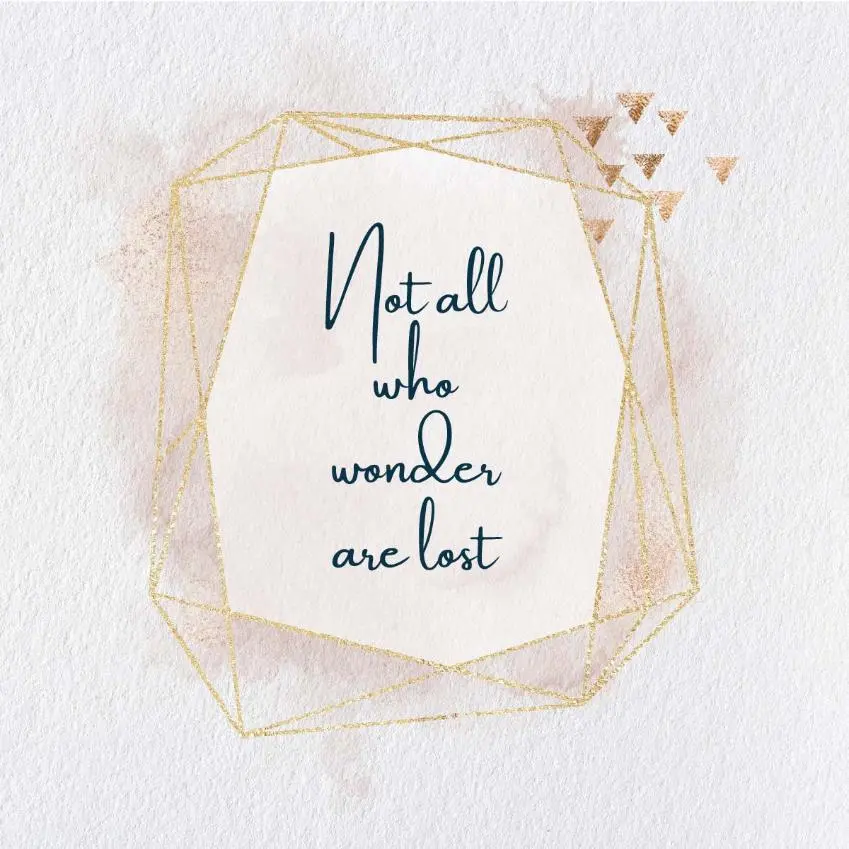 Not all
who
wonder
are lost